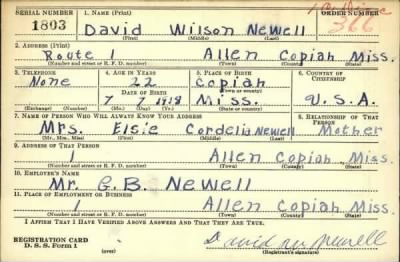 SERIAL NUMBER 1. NAME (Print) ORDER NUMBER
1803 David Wilson Newell 366
(First) (Middle) (Last)
2. ADDRESS (Print)
Route 1 Allen Copiah Miss.
(Number and street or R. F. D. number) (Town) (County) (State)
3. TELEPHONE 4. AGE IN YEARS 5. PLACE OF BIRTH 6. COUNTRY OF CITIZENSHIP
None 22 Copiah
(Town) (County)
DATE OF BIRTH
7 7 1918 Miss. U.S.A
(Exchange) (Number) (Mo.) (Day) (Yr.) (State) (Country)
7. NAME OF PERSON WHO WILL ALWAYS KNOW YOUR ADDRESS 8. RELATIONSHIP OF THAT PERSON
Mrs. Elsie Cordelia Newell Mother
(Mr., Mrs., Miss) (First) (Middle) (Last)
9. ADDRESS OF THAT PERSON
1 Allen Copiah Miss.
(Number and street or R. F. D. number) (Town) (County) (State)
10. EMPLOYER'S NAME
Mr. G.B. Newell
11. PLACE OF EMPLOYMENT OR BUSINESS
1 Allen Copiah Miss.
(Number and street or R. F. D. number) (Town) (County) (State)
I AFFIRM THAT I HAVE VERIFIED ABOVE ANSWERS AND THAT THEY ARE TRUE.
REGISTRATION CARD
D. S. S. Form 1 (over) David Newell
(Registrant's signature)